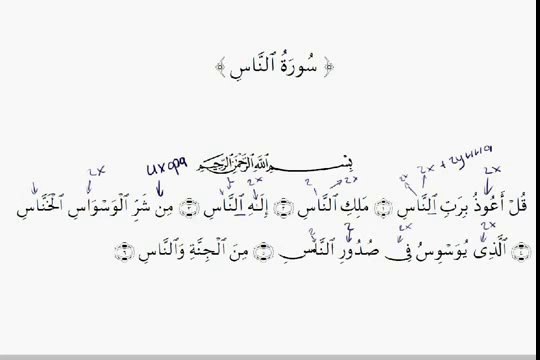 ﴿ سُورَةُ ٱلنَّاسِ ﴾
بِسْمِ ٱللَّهِ ٱلرَّحْمَٰنِ ٱلرَّحِيمِ
2x + гунна
2x
2x
2x
2x
ихфа
2x
قُلْ أَعُوذُ بِرَبِّ ٱلنَّاسِ ۝١ مَلِكِ ٱلنَّاسِ ۝٢ إِلَٰهِ ٱلنَّاسِ ۝٣ مِن شَرِّ ٱلْوَسْوَاسِ ٱلْخَنَّاسِ
2x
2x
2
2
۝٤ ٱلَّذِى يُوَسْوِسُ فِى صُدُورِ ٱلنَّاسِ ۝٥ مِنَ ٱلْجِنَّةِ وَٱلنَّاسِ ۝٦